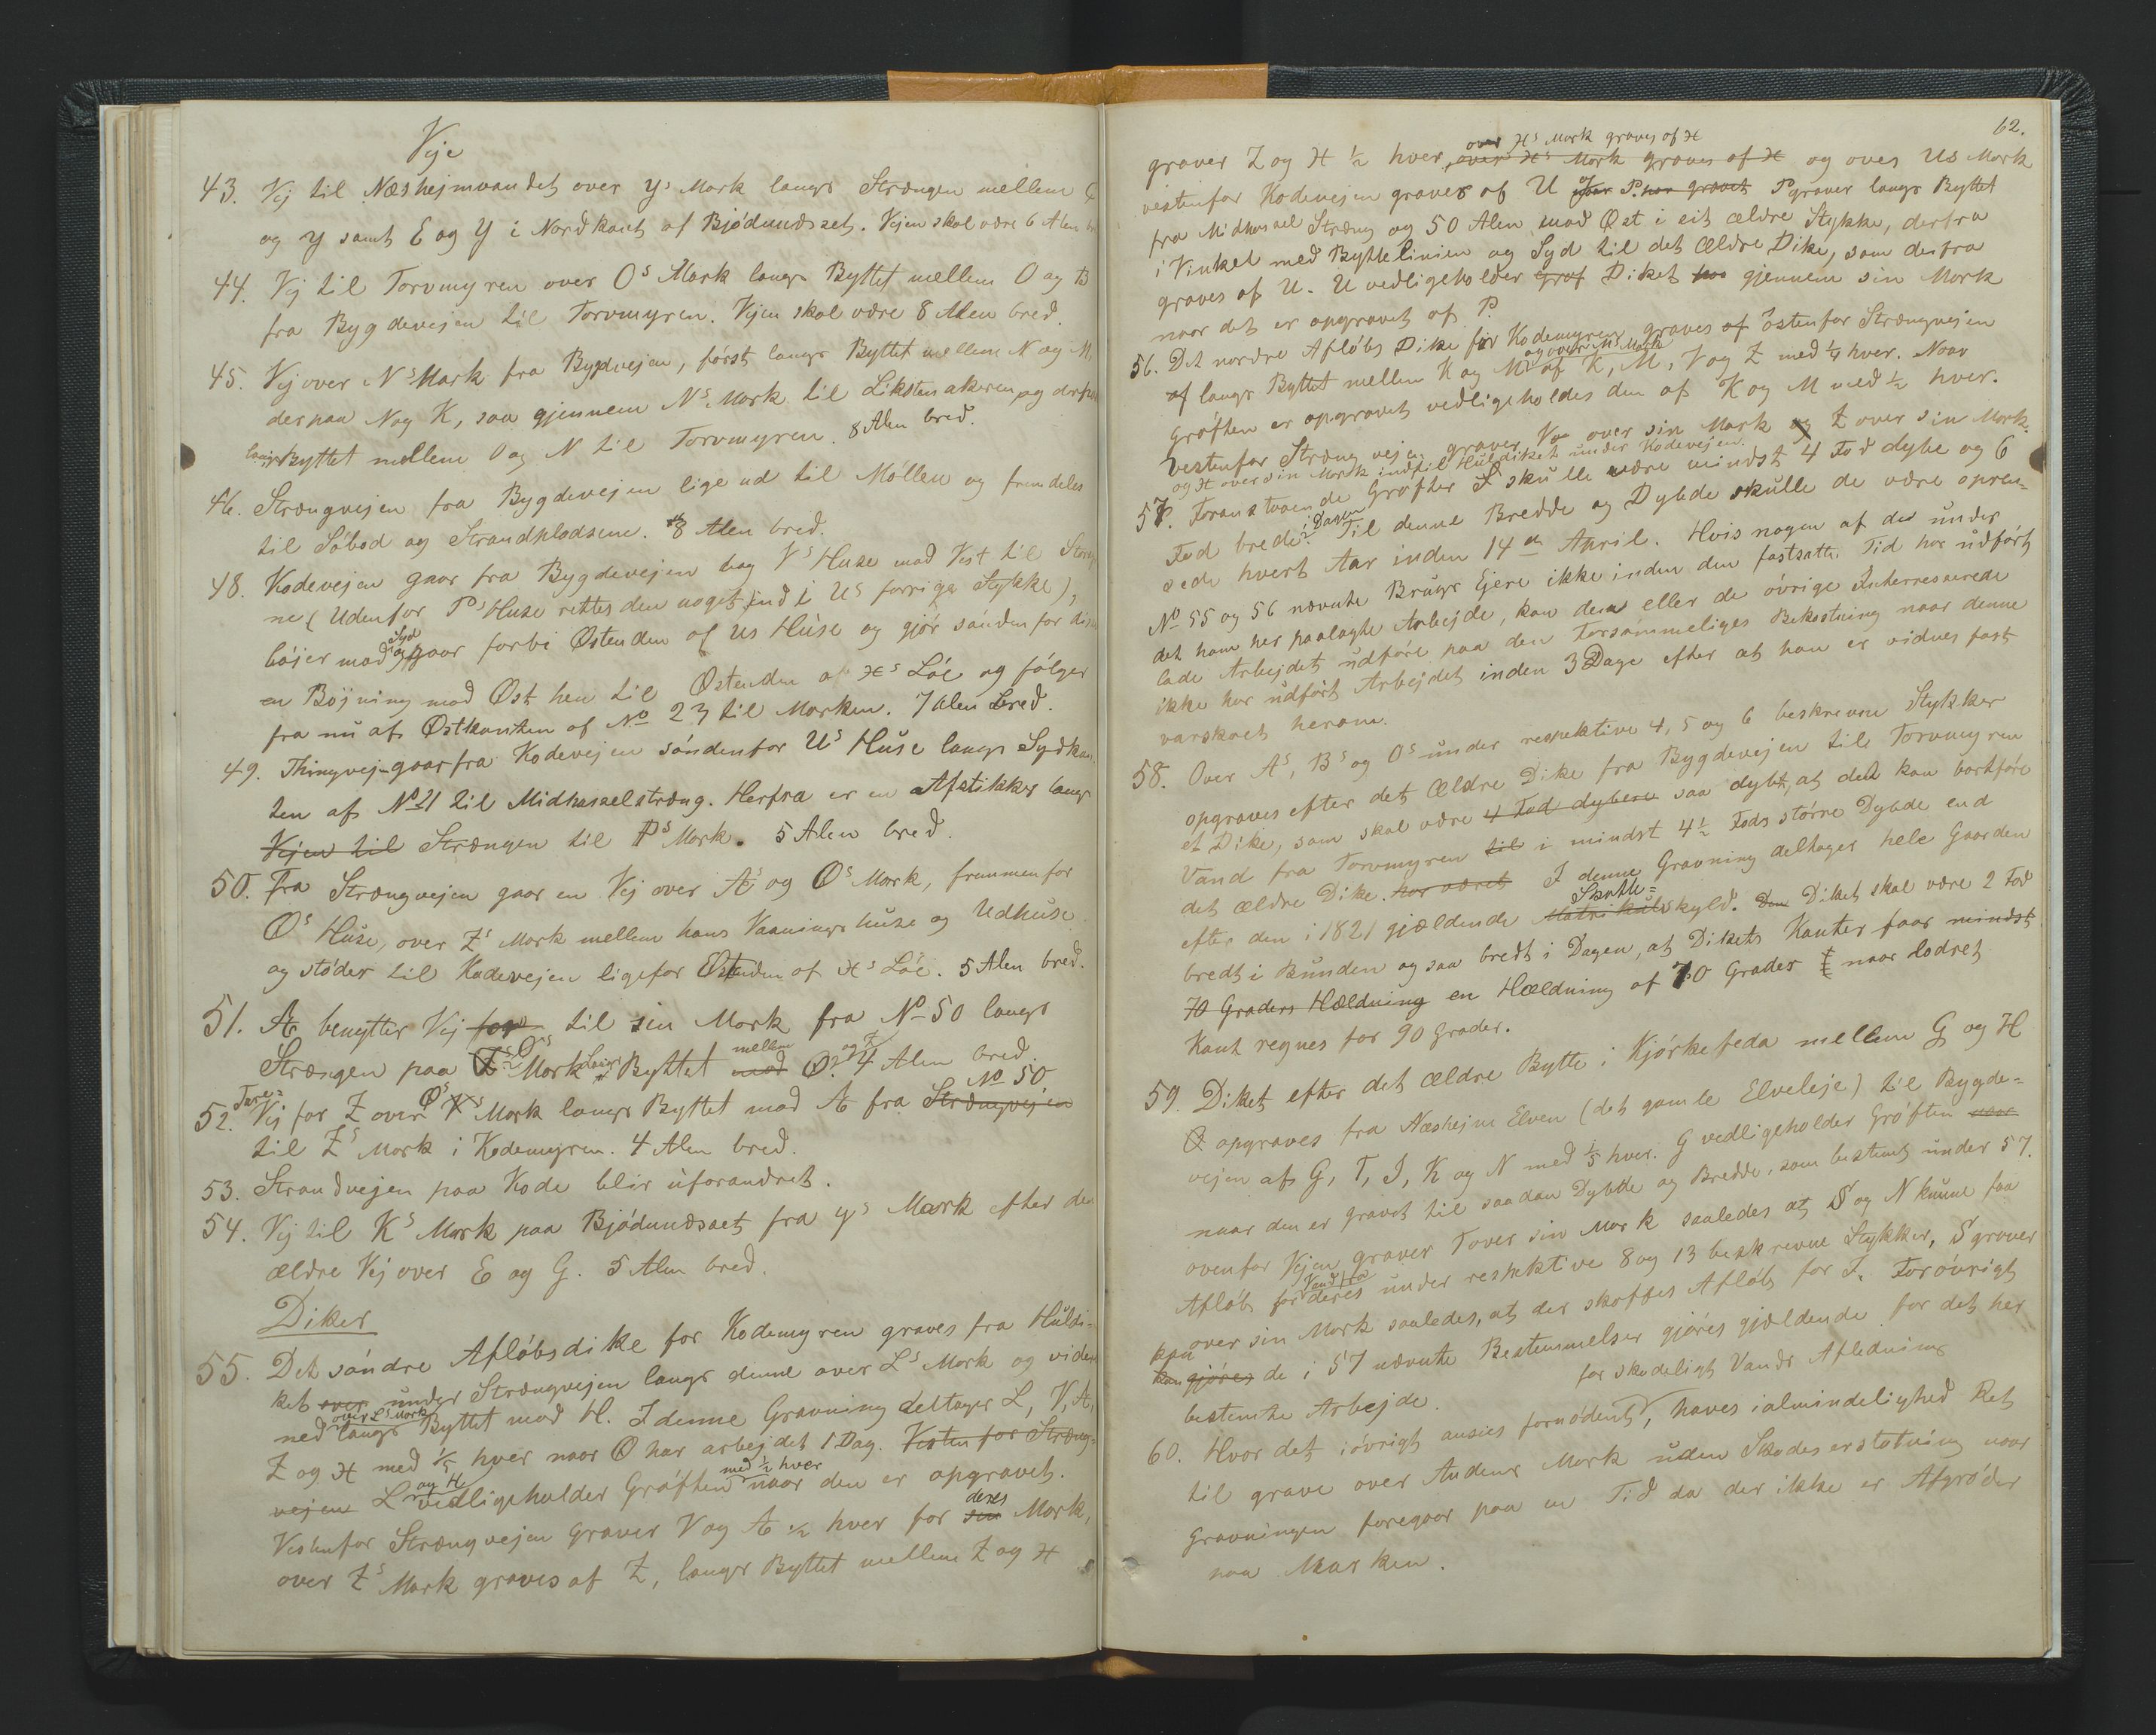 Veje
43. Vej til Næshejmvandet over Ys Mark langs Strængen mellem G
og Y samt E og Y i Nordkant af Bjødnndsset. Vejen skal være 6 Alen
44. Vej til Torvmyren over Os Mark langs Byttet mellem O og B
fra Bygdevejen til Torvmyren. Vejen skal være 8 Alen bred.
45. Vej over Ns Mark fra Bygdvejen, først langs Byttet mellem N og M,
derpaa N og K, saa gjennem Ns Mark til Liksten akeren og derfra
langs Byttet mellem O og N til Torvmyren. 8 Alen bred.
46. Strængvejen fra Bygdevejen lige ud til Møllen og fremdeles
til Søbod og Strandplodsene. 8 Alen bred.
48. Kodevejen gaar fra Bygdevejen bag Vs Huse mod Vest til
ne (Udenfor Ps Huse rettes den noget ind i Us forrige Stykke),
bøjer mod Syd og gaar forbi Østenden af Us Huse og gjør søndenfor
en Bøjning mod Øst hen til Østenden af Ħs Løe og følger
fra nu af Østkanten af No 23 til Marken. 7 Alen bred.
49. Thingvej gaar fra Kodevejen søndenfor Us Huse langs Sydkan-
ten af No 21 til Midhasselstræng. Herfra er en Afstikker langs
Vejen til Strængen til Ps Mark. 5 Alen bred.
50. Fra Strængvejen gaar en Vej over Æs og Øs Mark, frammenfor
Øs Huse, over Zs Mark mellem hans Vaaningshuse og Udhuse
og støder til Kodevejen ligefor Østenden af Ħs Løe. 5 Alen bred.
51. Æ benytter Vej for til sin Mark fra No 50 langs
Strængen paa Øs Mark langs Byttet mod mellem Ø og Z 4 Alen bred.
52. Vej for Z over Øs Mark langs Byttet mod Æ fra Strængvejen No 50.
til Zs Mark i Kodemyren. 4 Alen bred.
53. Strandvejen paa Kode blir uforandret.
54. Vej til Ks Mark paa Bjødnndsset fra Ys Mark efter den
ældre Vej over E og G. 5 Alen bred.
Diker
55. Det søndre Afløbsdike for Kodemyren graves fra Huldi-
ket over under Strængvejen langs denne over Ls Mark og videre
ned over Ls Mark langs Byttet mod H. I denne Gravning deltager L, V, Æ,
Z og Ħ med 1/5 hver naar Ø har arbejdet 1 Dag. Vesten for Stræng-
vejen L og H vedligeholder Grøften med 1/2 hver naar den er opgravet.
Vestenfor Strængvejen graver V og Æ 1/2 hver for sin deres Mark,
over Zs Mark graves af Z, langs Byttet mellem Z og Ħ
62.
graver Z og Ħ 1/2 hver, over Ħs Mark graves af Ħ over Ħs Mark graves af Ħ og over Us Mark
vestenfor Kodevejen graves af U og P har gravet P graver langs Byttet
fra Midhassel Stræng og 50 Alen mod Øst i eit ældre Stykke, derfra
i Vinkel med Byttelinien og Syd til det ældre Dike, som derfra
graves af U. U vedligeholder graf Diket har gjennem sin Mark
naar det er opgravet af P.
56. Det nordre Afløbs Dike for Kodemyren graves af østenfor Strængvejen
af langs Byttet mellem K og M og over Ms Mark af K, M, V og Z med 1/4 hver. Naar
Grøften er opgravet vedligeholdes den af K og M med 1/2 hver.
Vestenfor Strængvejen graver V over sin Mark og Z over sin Mark
og Ħ over sin Mark indtil Huldiket under Kodevejen.
57. Foranstaaende Grøfter skulle være mindst 4 Fod dybe og 6
Fod brede i Dagen. Til denne Bredde og Dybde skulle de være opren-
sede hvert Aar inden 14de April. Hvis nogen af de under
No 55 og 56 nævnte Brugs Ejere ikke inden den fastsatte Tid har udført
det ham her paalagte Arbejde, kan den eller de øvrige Interresserede
lade Arbejdet udføre paa den Forsømmeliges Bekostning naar denne
ikke har udført Arbejdet inden 3 Dage efter at han er vidnes fast
varskoet herom.
58. Over As, Bs og Os under respektive 4, 5 og 6 beskrevne Stykker
opgraves efter det ældre Dike fra Bygdevejen til Torvmyren
et Dike, som skal være 4 Fod dybere saa dybt, at det kan bortføre
Vand fra Torvmyren til i mindst 4 1/2 Fods større Dybde end
det ældre Dike. har været I denne Gravning deltager hele Gaarden
efter den i 1821 gjældende Matrikul Skatte-skyld. Den Diket skal være 2 Fod
bredt i Bunden og saa bredt i Dagen, at Dikets Kanter faar mindst
70 Graders Hældning en Hældning af 70 Grader naar lodret
Kant regnes for 90 Grader.
59. Diket efter det ældre Bytte i Kjørkefeda mellem G og H
opgraves fra Næshejm Elven (det gamle Elveleje) til Bygde-
vejen af G, T, I, K og N med 1/5 hver. G vedligeholder Grøften
naar den er gravet til saadan Dybde og Bredde, som bestemt under 57.
ovenfor Vejen graver T over sin Mark saaledes at S og N kunne faa
Afløb for Vand fra deres under respektive 8 og 13 beskrevne Stykker, S graver
over sin Mark saaledes, at der skaffes Afløb for I. Forøvrigt
kan kan gjøres de i 57 nævnte Bestemmelser gjøres gjældende for det her
bestemte Arbejde.
60. Hvor det iøvrigt ansees fornødent for skadeligt Vands Afledning, haves ialmindelighed Ret
til grave over Andens Mark uden Skadeserstatning naar
Gravningen foregaar paa en Tid da der ikke er Afgrøder
paa Marken.